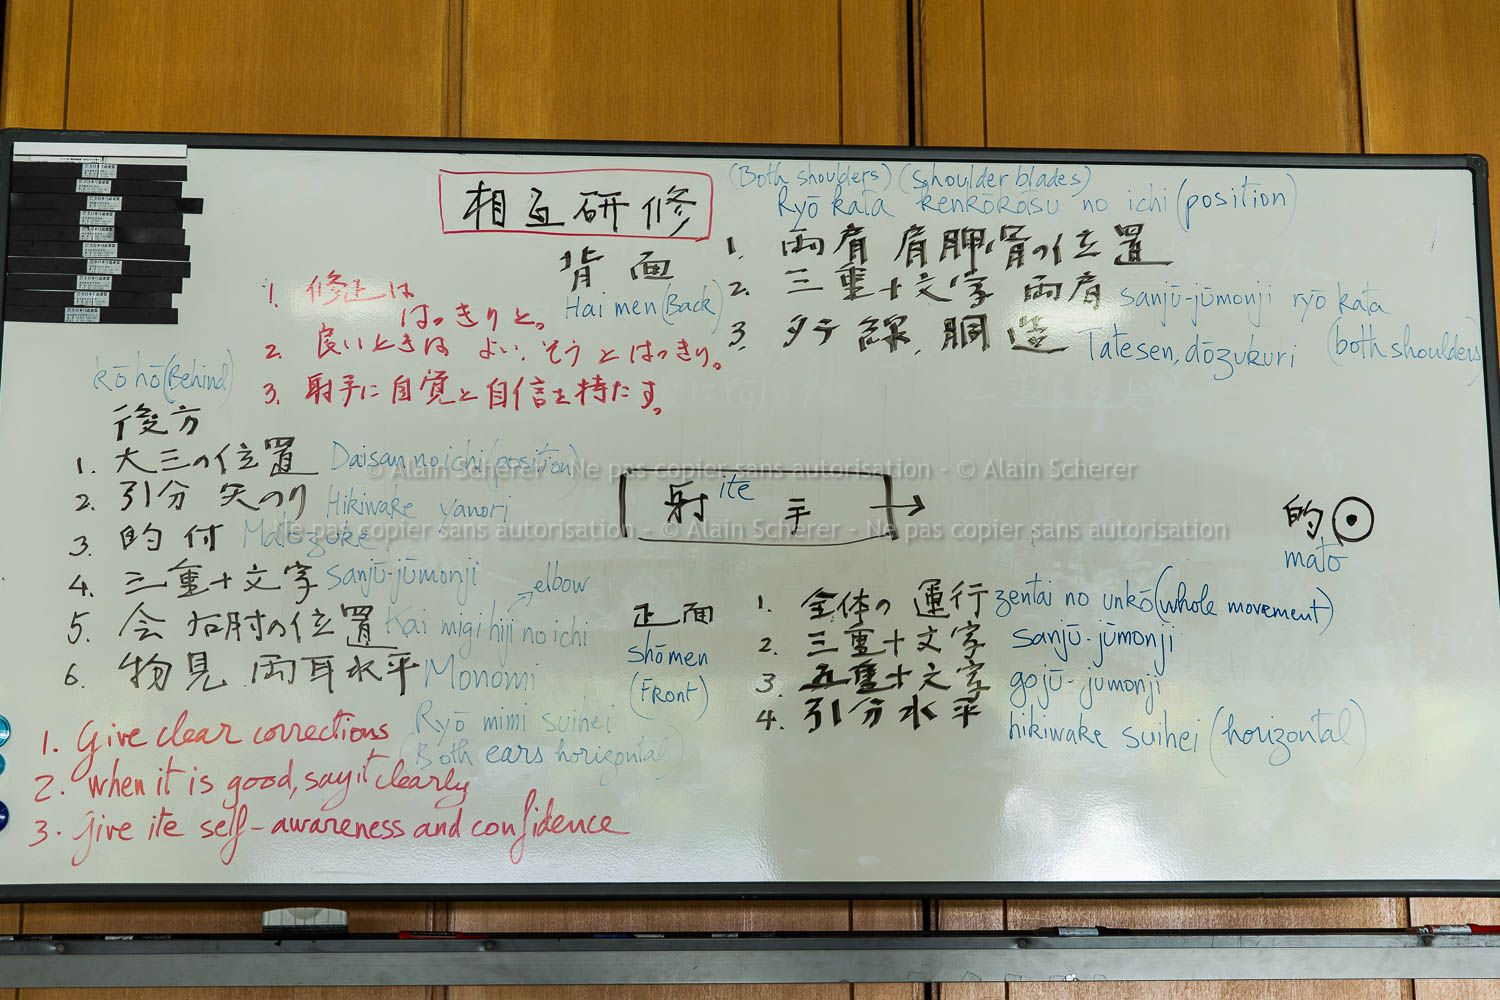 相互研修
背面
Haimen (Back)
1. 修正は
はっきりと。
2. 良いときは よい、そうとはっきり。
3. 射手に自覚と自信を持たす。
(Both shoulders) (shoulder blades)
Ryō kata kenkōkotsu no ichi (position)
1. 両肩 肩胛骨の位置
2. 三重十文字 両肩 sanjū-jūmonji ryō kata
3. タテ線、胴造 Tatesen, dōzukuri (both shoulders)
kōhō (Behind)
後方
1. 大三の位置 Daisan no ichi (position)
2. 引分 矢のり Hikiwake yanori
3. 的付 Matozuke
4. 三重十文字 sanjū-jūmonji
5. 会 右肘の位置 Kai migi hiji no ichi
elbow
6. 物見 両耳水平 Monomi
Ryō mimi suihei
(Both ears horizontal)
射手 ite
的
mato
正面
shōmen
(Front)
1. 全体の運行 zentai no unkō (whole movement)
2. 三重十文字 sanjū-jūmonji
3. 五重十文字 gojū-jumonji
4. 引分水平 hikiwake suihei (horizontal)
1. Give clear corrections
2. when it is good, say it clearly
3. give ite self-awareness and confidence
© Alain Scherer - Ne pas copier sans autorisation - © Alain Scherer
Ne pas copier sans autorisation - © Alain Scherer - Ne pas copier sans autorisation